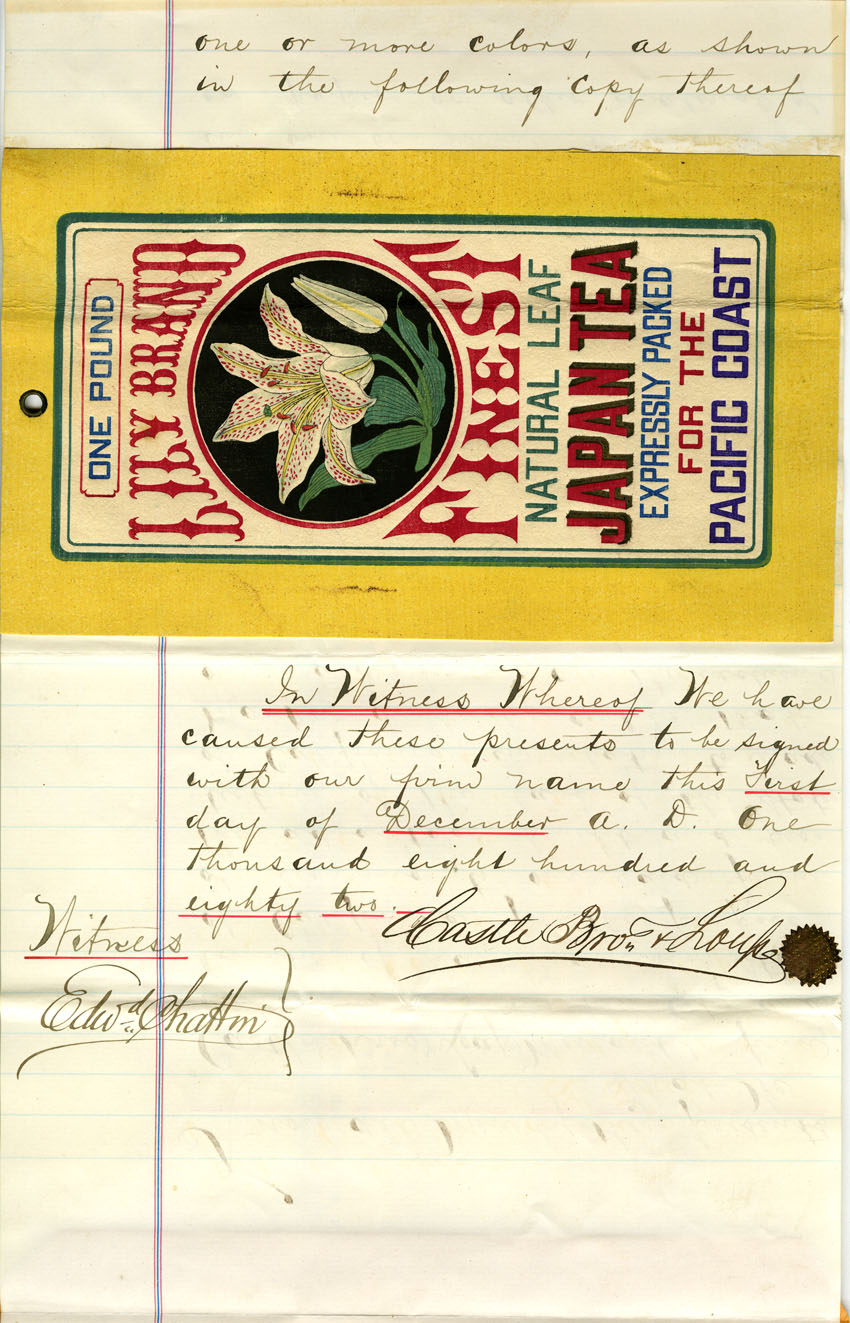 one or more colors, as shown
in the following copy thereof
ONE POUND
LILY BRAND
FINEST
NATURAL LEAF
JAPAN TEA
EXPRESSLY PACKED
FOR THE
PACIFIC COAST
In Witness Whereof We have
caused these presents to be signed
with our firm name this First
day of December A. D. One
thousand eight hundred and
eighty two.
Castle Bros & Loupe
Witness
Edwd Chattin